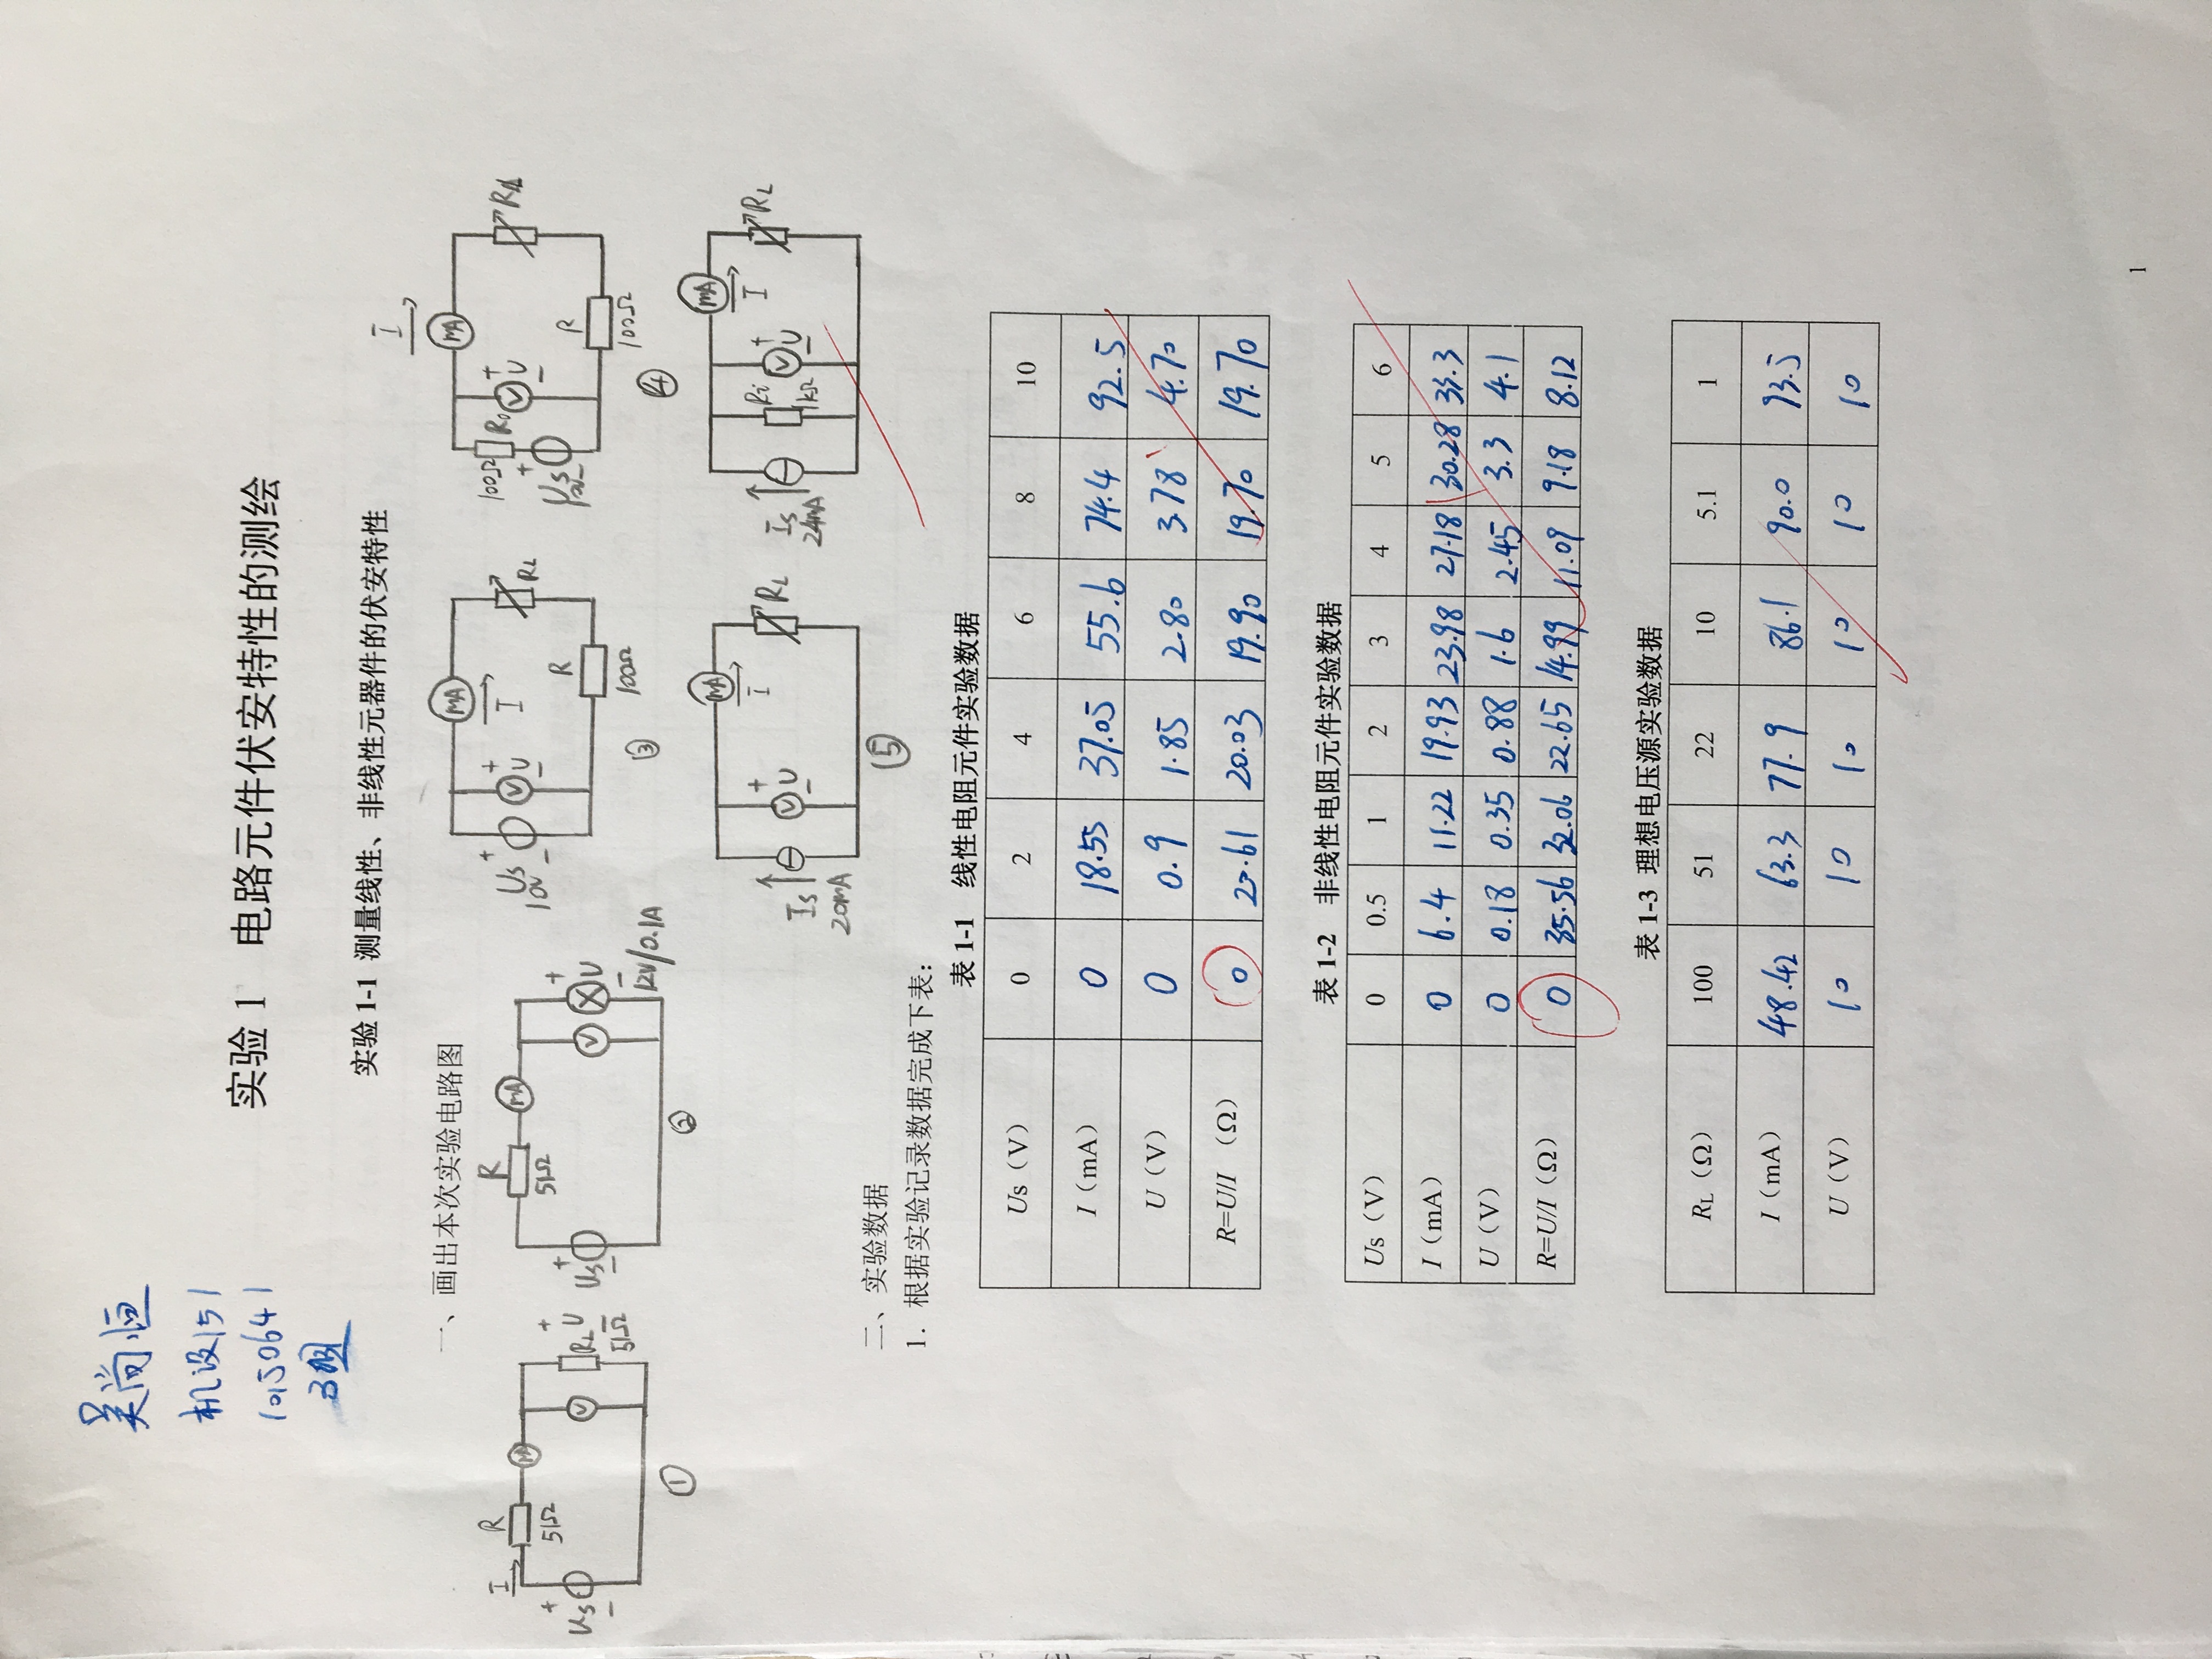 吴尚恒
机设151
10150641
3组
实验 1 电路元件伏安特性的测绘
实验 1-1 测量线性、非线性元器件的伏安特性
一、画出本次实验电路图
I R 51Ω mA Us + − V RL U + − 51Ω ①
R 51Ω mA Us + − V + U − 12V/0.1A ②
Us 10V + − V + U − mA I RL R 100Ω ③
I mA 100Ω R0 + Us − V + U − R 100Ω ④
Is 20mA V + U − mA I RL ⑤
Is 24mA Ri 1kΩ V + U − mA I RL
二、实验数据
1. 根据实验记录数据完成下表:
表 1-1 线性电阻元件实验数据
Us(V) 0 2 4 6 8 10
I(mA) 0 18.55 37.05 55.6 74.4 92.5
U(V) 0 0.9 1.85 2.80 3.78 4.70
R=U/I(Ω) 0 20.03 19.90 19.70 19.70
表 1-2 非线性电阻元件实验数据
Us(V) 0 0.5 1 2 3 4 5 6
I(mA) 0 6.4 11.22 19.93 23.98 27.18 30.28 33.3
U(V) 0 0.18 0.35 0.88 1.6 2.45 3.3 4.1
R=U/I(Ω) 0 35.56 32.06 22.65 14.99 11.09 9.18 8.12
表 1-3 理想电压源实验数据
RL(Ω) 100 51 22 10 5.1 1
I(mA) 48.42 63.3 77.9 86.1 90.0 93.5
U(V) 10 10 10 10 10 10
1